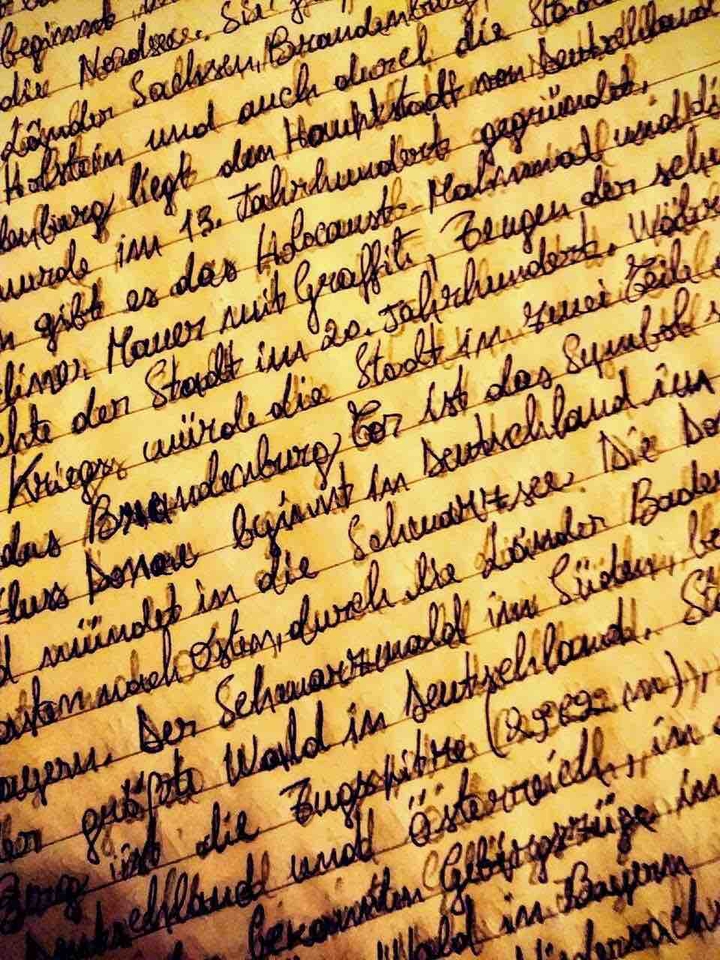 beginnt
die Nordsee. Sie
Länder Sachsen, Brandenburg
Holstein und auch durch die Sta
denburg liegt den Hauptstadt von Deutschland
wurde im 13. Jahrhundert gegründet.
n gibt es das Holocaust-Mahnmal und di
liner Mauer mit Graffiti, Zeugen der schw
chte der Stadt im 20. Jahrhundert. Währ
Krieges würde die Stadt in zwei Teile
das Brandenburg Tor ist das Symbol
Fluss Donau beginnt in Deutschland im
d mündet in die Schwarzsee. Die Do
esten nach Osten, durch die Länder Baden
ayern. Der Schwarzwald im Süden, be
er größte Wald in Deutschland. S
Berg ist die Zugspitze (2962 m),
Deutschland und Österreich, in
bekannten Gebirgszüge im
Wald in Bayern
Niedersachs